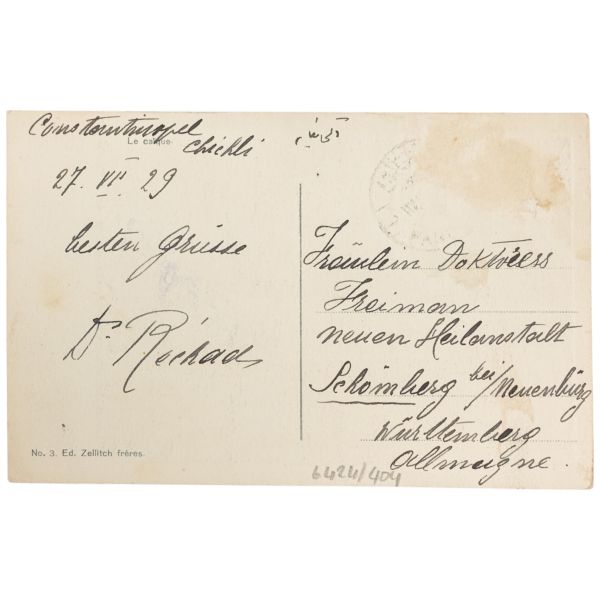 Constantinopel
Chichli
Le caïque.
27. VII 29
besten Grüsse
Dr. Réchad
No. 3. Ed. Zellitch frères.
Fräulein Doktoers
Freiman
neuen Heilanstalt
Schömberg bei/Neuenbürg
Württemberg
Allmagne.
6424/404